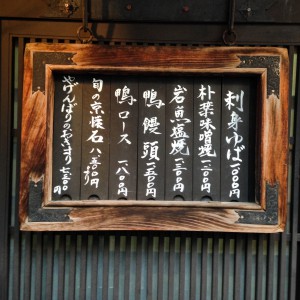 刺身ゆば 一、二〇〇円
朴葉味噌焼 一、二〇〇円
岩魚塩焼 一、二〇〇円
鴨饅頭 一、五〇〇円
鴨ロース 一、八〇〇円
旬の京懐石 八、五〇〇円より
やげんぼりのおきまり 七、五〇〇円